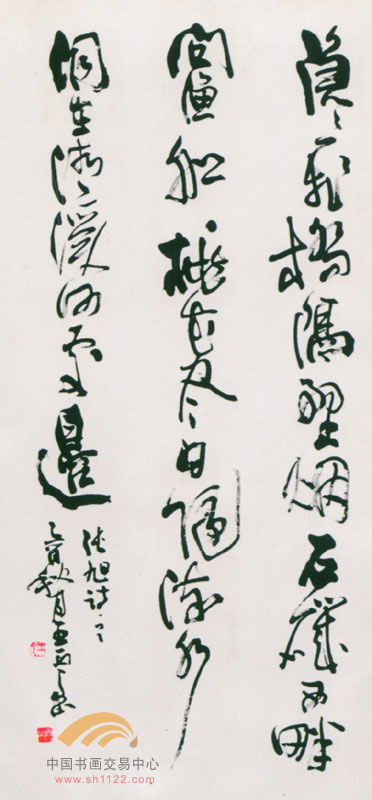 隱隱飛橋隔野烟石磯西畔
問漁船桃花盡日隨流水
洞在清溪何處邊
張旭詩
秋月
中国书画交易中心
www.sh1122.com